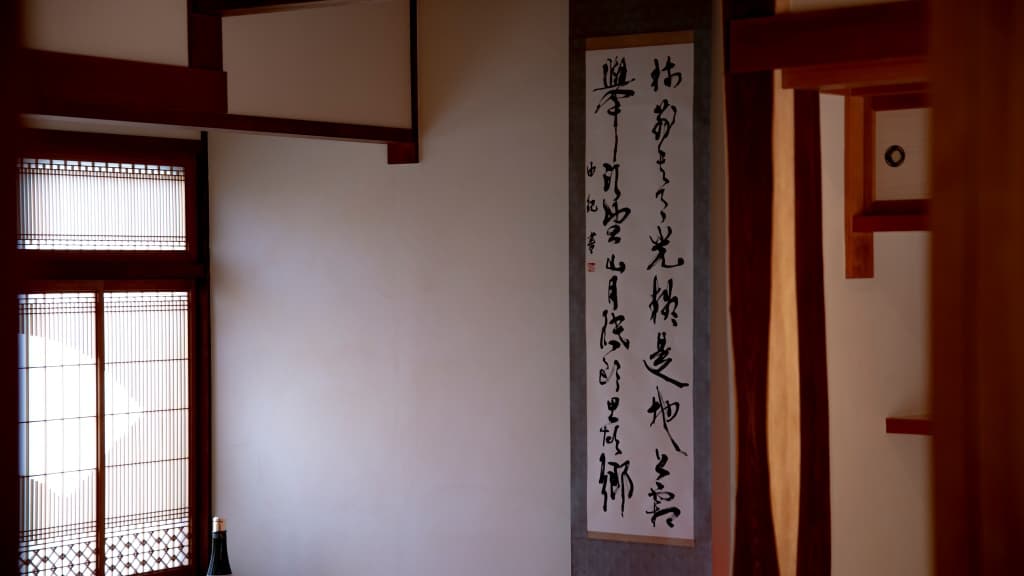 牀前看月光疑是地上霜
舉頭望山月低頭思故鄉
由紀書